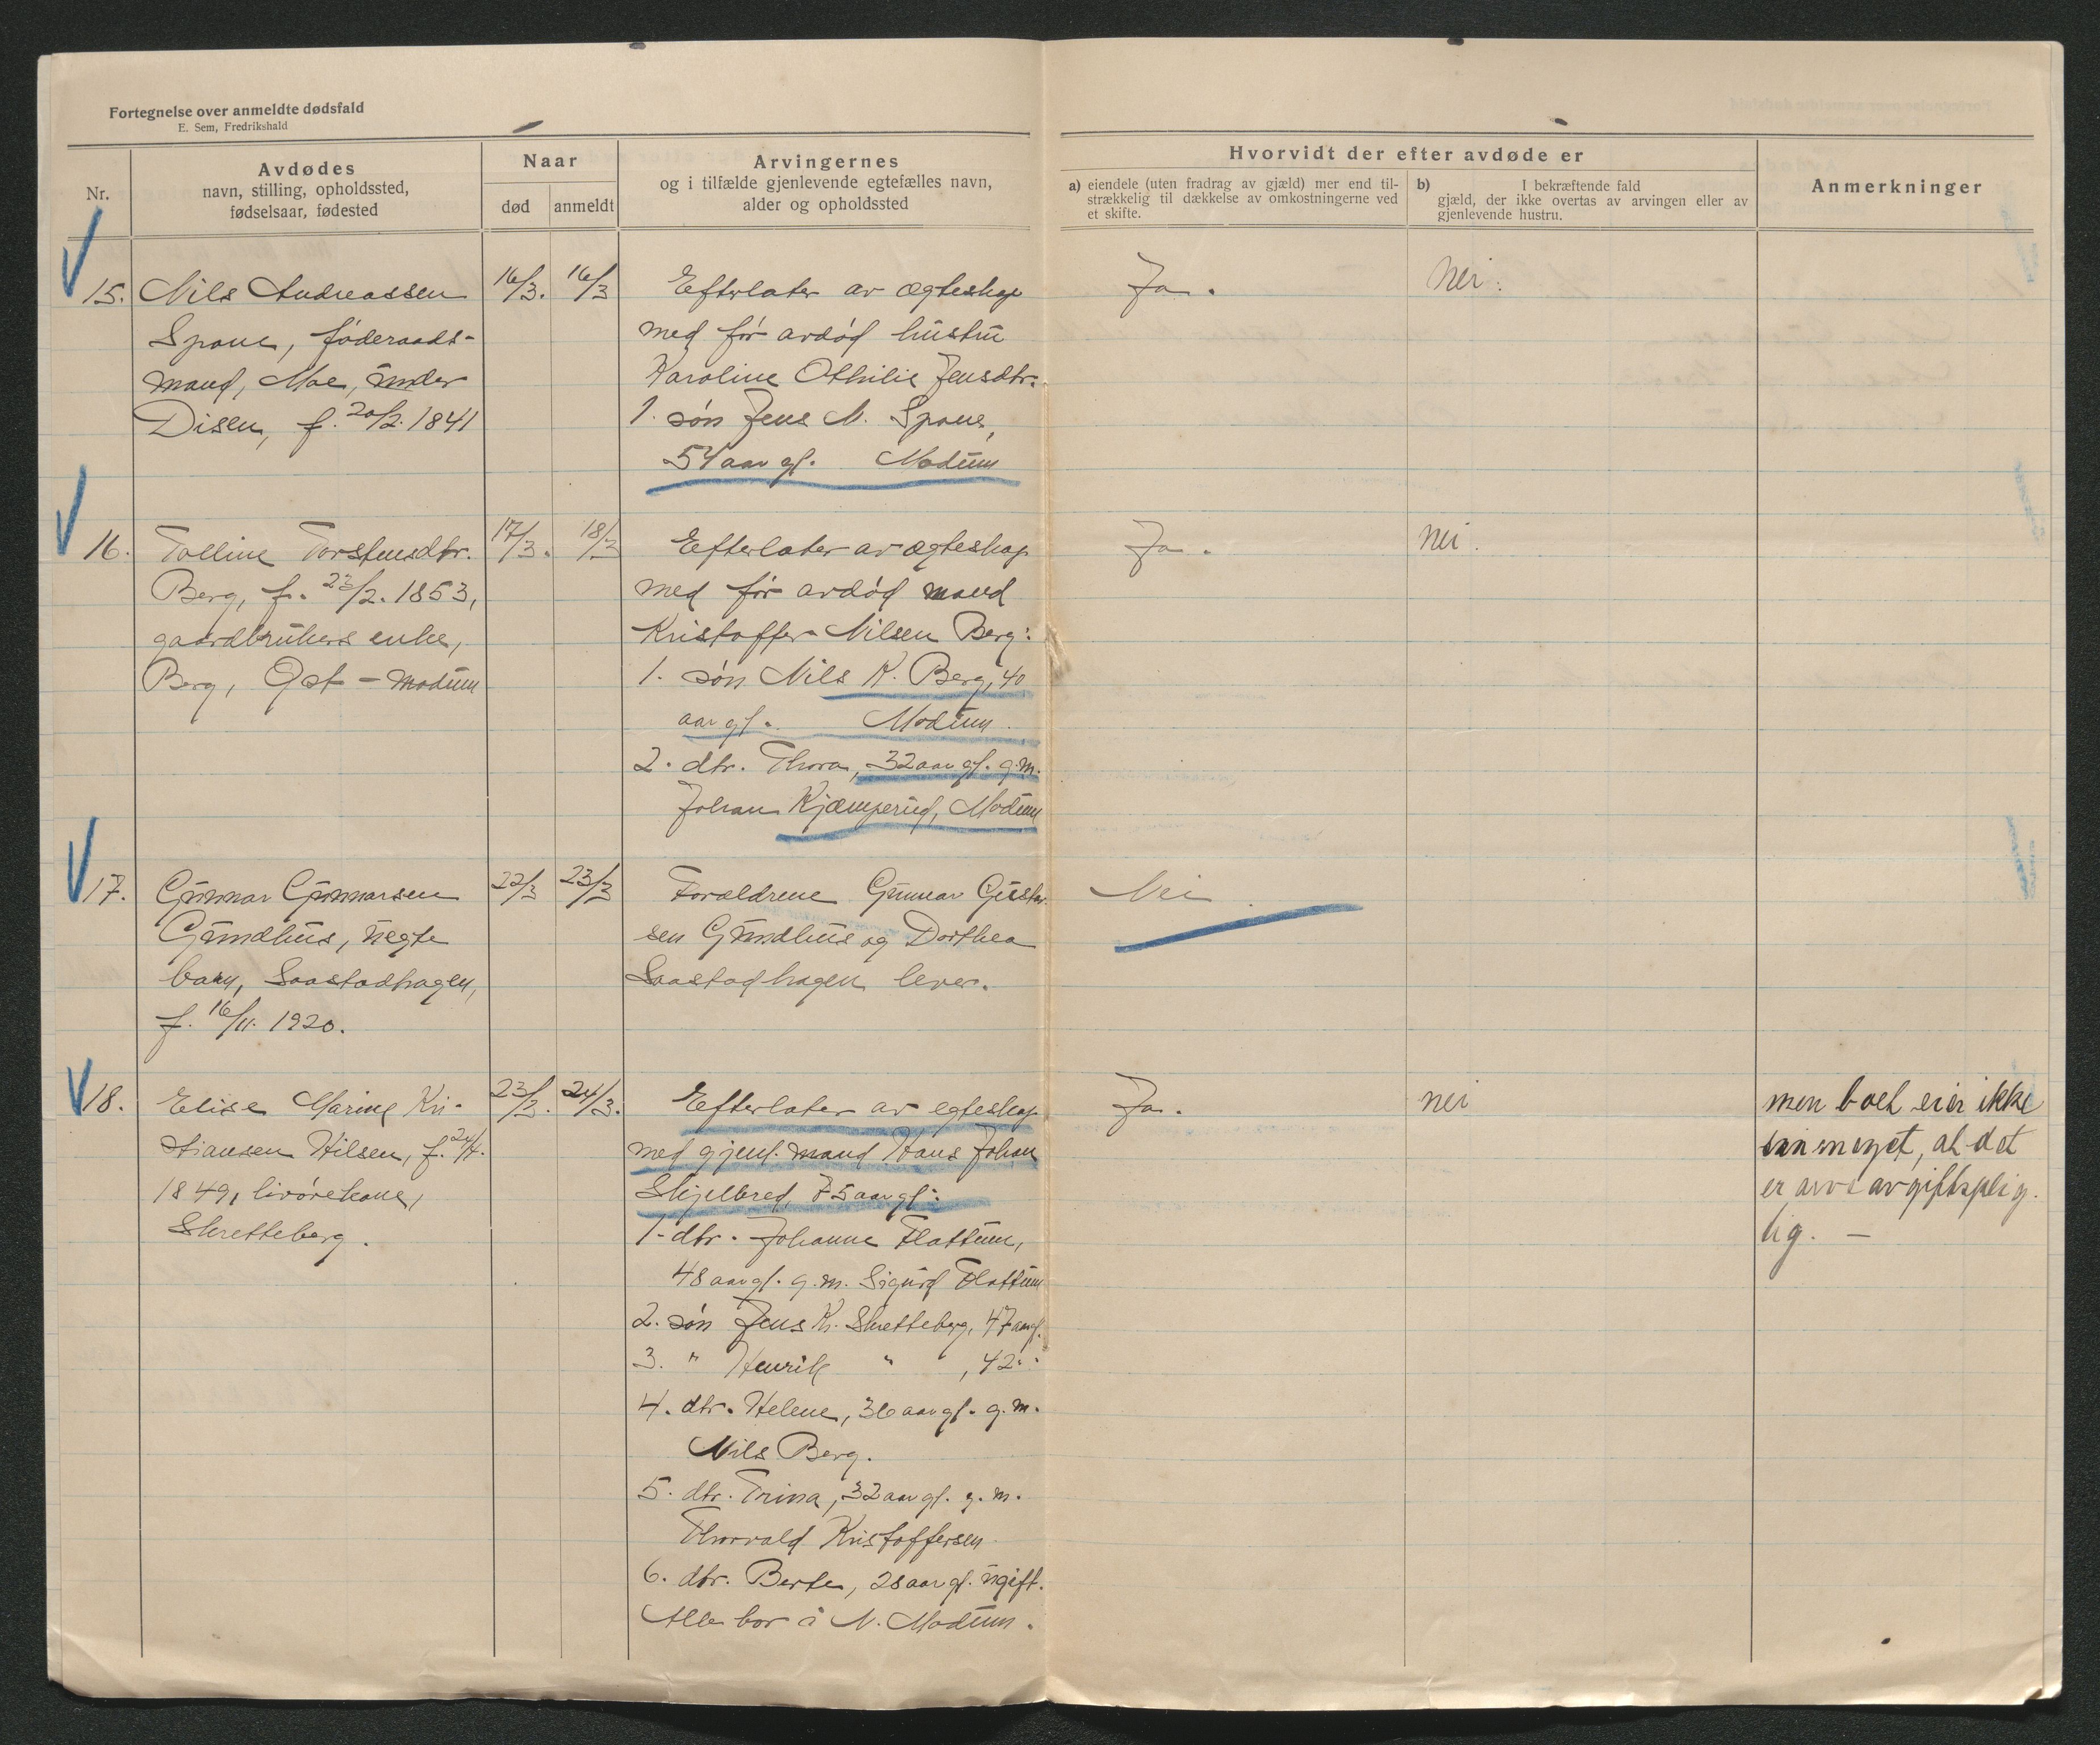 Fortegnelse over anmeldte dødsfald
E. Sem, Fredrikshald
Nr.
Avdødes
navn, stilling, opholdssted,
fødselsaar, fødested
Naar
død
anmeldt
Arvingernes
og i tilfælde gjenlevende egtefælles navn,
alder og opholdssted
Hvorvidt der efter avdøde er
a) eiendele (uten fradrag av gjæld) mer end til-
strækkelig til dækkelse av omkostningerne ved
et skifte.
b) I bekræftende fald
gjæld, der ikke overtas av arvingen eller av
gjenlevende hustru.
Anmerkninger
15. Nils Andreassen
Spone, føderaads-
mand, Moe, under
Disen, f. 20/2. 1841
16/3. 16/3
Efterlater av ægteskap
med før avdød hustru
Karoline Othilie Jensdtr:
1. søn Jens N. Spone,
54 aar gl. Modum
Ja.
Nei.
16. Tolline Torstensdtr.
Berg, f. 23/2. 1853,
gaardbrukers enke,
Berg, Øst-Modum
17/3. 18/3
Efterlater av ægteskap
med før avdød mand
Kristoffer Nilsen Berg:
1. søn Nils K. Berg, 40
aar gl. Modum.
2. dtr. Thora, 32 aar gl. g.m.
Johan Kjæmperud, Modum
Ja.
Nei.
17. Gunnar Gunnarsen
Gundhus, uegte
barn, Saastadhagen,
f. 16/11. 1920.
22/3 23/3
Forældrene Gunnar Gustav
sen Gundhus og Dorthea
Saastadhagen lever.
Nei.
18. Elise Marine Kri-
stiansen Hilsen, f. 24/4.
1849, livørekone,
Skretteberg.
23/3. 24/3.
Efterlater av egteskap
med gjenl. mand Hans Johan
Skjelbred, 75 aar gl:
1. dtr. Johanne Flattum,
48 aar gl. g.m. Sigurd Flattum
2. søn Jens Kr. Skretteberg, 47 aar gl.
3. " Henrik " , 42 " "
4. dtr. Helene, 36 aar gl. g.m.
Nils Berg.
5. dtr. Trina, 32 aar gl. g.m.
Thorvald Kristoffersen.
6. dtr. Berte, 28 aar gl. ugift.
Alle bor i N. Modum.
Ja.
nei
men boet eier ikke
saa meget, at det
er arvsavgiftsplig.
tig. —